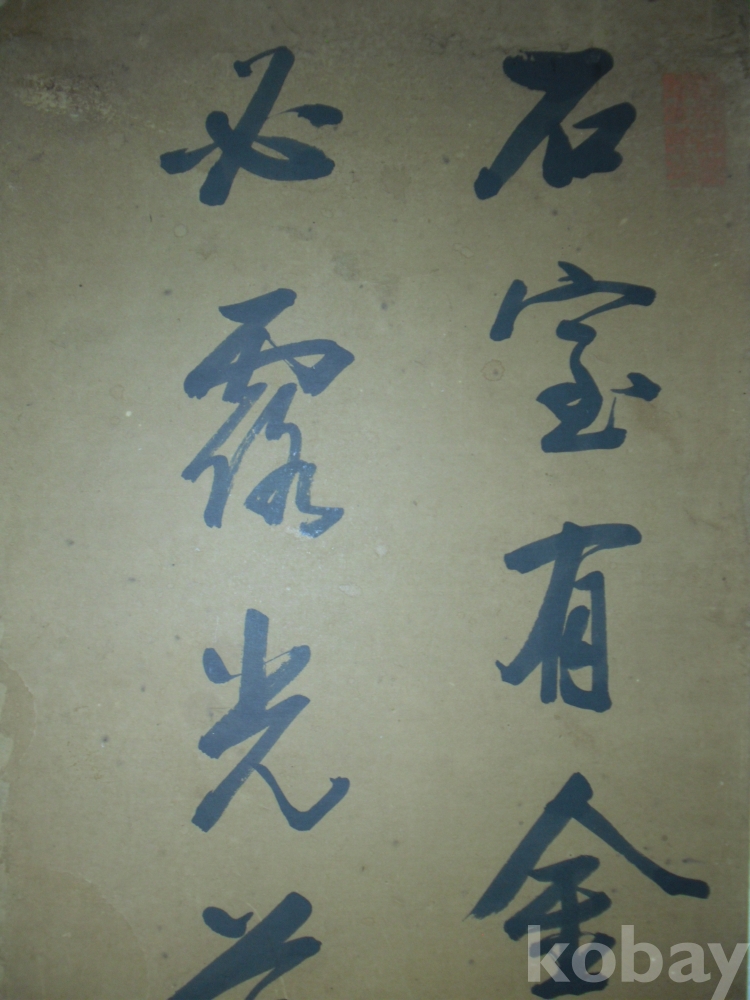 石室有金
必露光
kobay